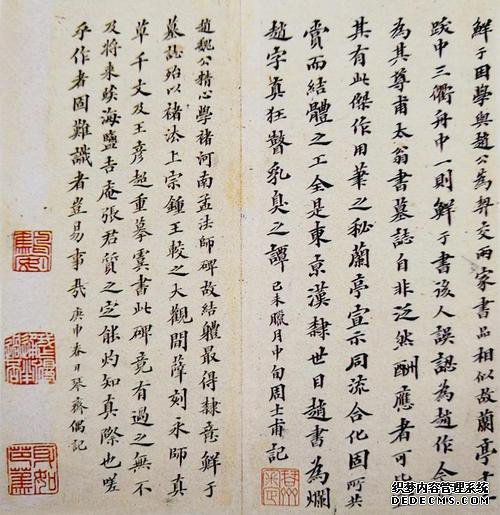 鮮于困學與趙公為契交兩家書品相似故蘭亭十
跋中三衢舟中一則鮮于書後人誤認為趙作今
為其尊甫太翁書墓誌自非泛然酬應者可
其有此傑作用筆之秘蘭亭宣示同流合化固所共
賞而結體之工全是東京漢隸世目趙書為爛
趙字真狂瞽乳臭之譚 己未臘月中旬周士甫記
趙魏公精心學褚河南孟法師碑故結軆最得隸意鮮于
墓誌殆以褚法上宗鍾王較之大觀閣薛刻永師真
草千文及王彥超重摹虞書此碑竟有過之無不
及將來海鹽吉庵張君質之定能灼知真際也嗟
乎作者固難識者豈易事哉 庚申春日琴齋偶記
织梦内容管理系统
DEDECMS.COM